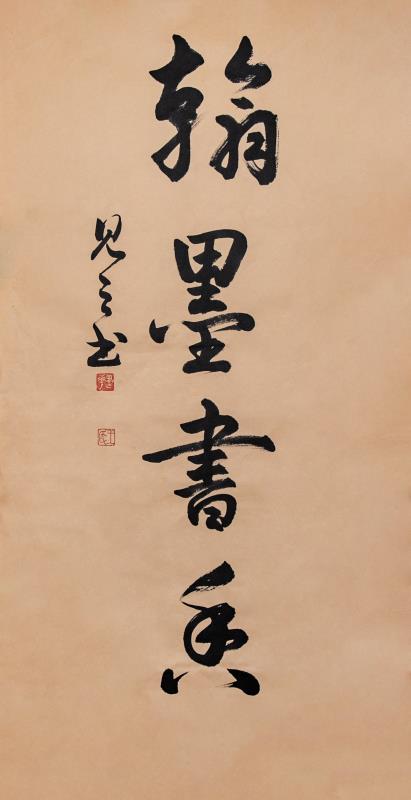 翰墨書香
见之书